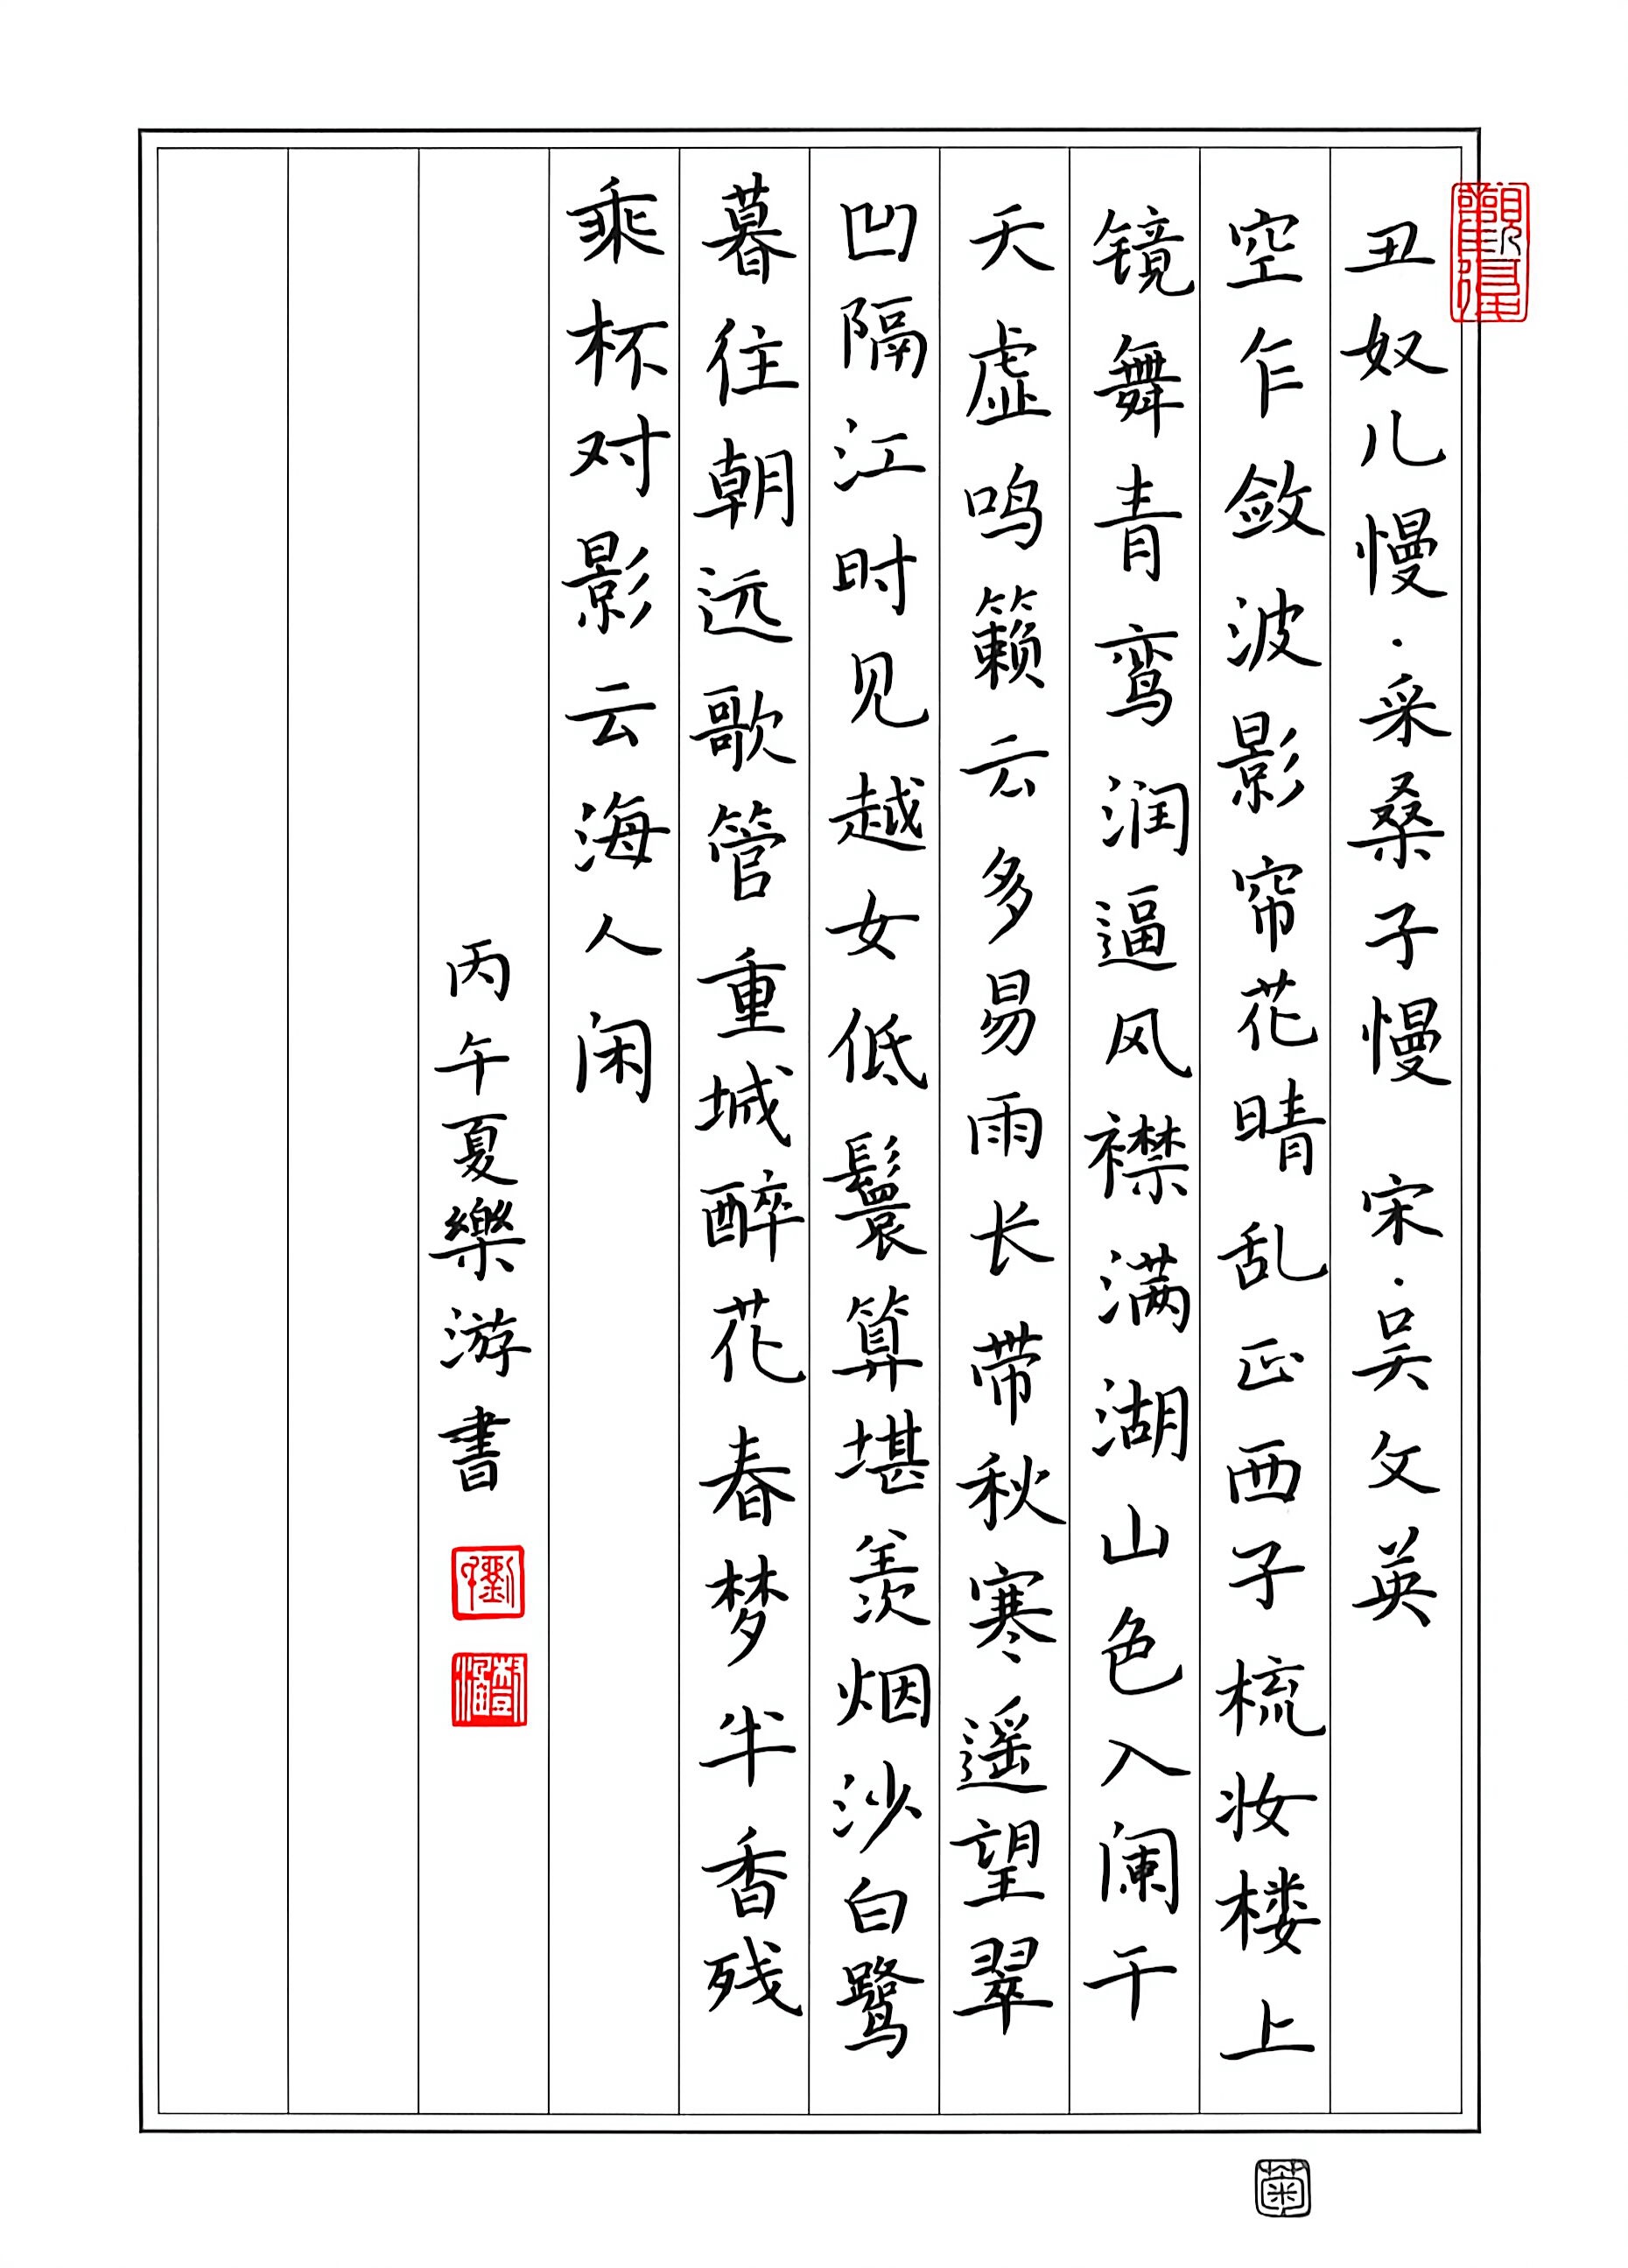 丑奴儿慢·采桑子慢 宋·吴文英
空乍敛波影帘花晴乱正西子梳妆楼上
镜舞青鸾润逼风襟满湖山色入阑干
天虚鸣籁云多易雨长带秋寒遥望翠
凹隔江时见越女低鬟算堪羡烟沙白鹭
暮往朝远歌管重城醉花春梦半香残
乘杯对影云海人闲
丙午夏樂游書